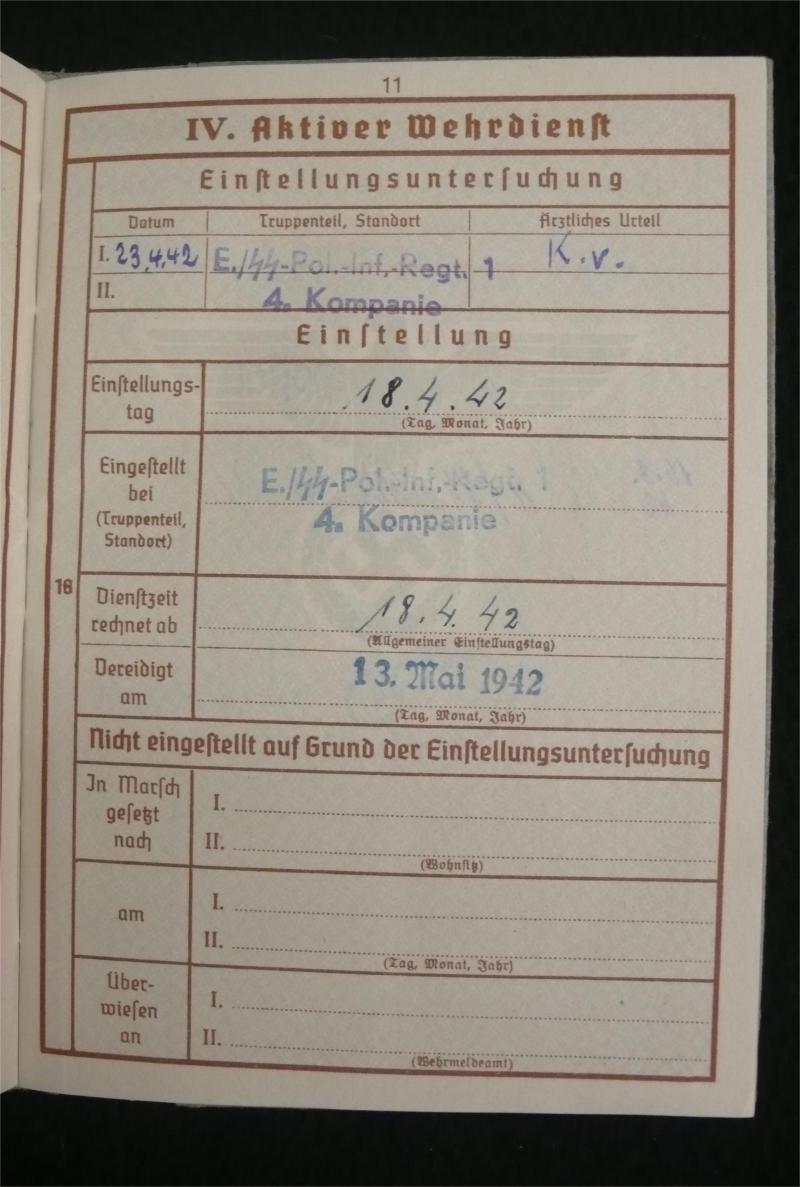 11
IV. Aktiver Wehrdienst
Einstellungsuntersuchung
Datum Truppenteil, Standort Ärztliches Urteil
I. 23.4.42 E./SS-Pol.-Inf.-Regt. 1 K.v.
II. 4. Kompanie
Einstellung
Einstellungs-
tag
18.4.42
(Tag, Monat, Jahr)
Eingestellt
bei
(Truppenteil,
Standort)
E./SS-Pol.-Inf.-Regt. 1
4. Kompanie
16
Dienstzeit
rechnet ab
18.4.42
(Allgemeiner Einstellungstag)
Vereidigt
am
13. Mai 1942
(Tag, Monat, Jahr)
Nicht eingestellt auf Grund der Einstellungsuntersuchung
In Marsch
gesetzt
nach
I.
II.
(Wohnsitz)
am
I.
II.
(Tag, Monat, Jahr)
Über-
wiesen
an
I.
II.
(Wehrmeldeamt)